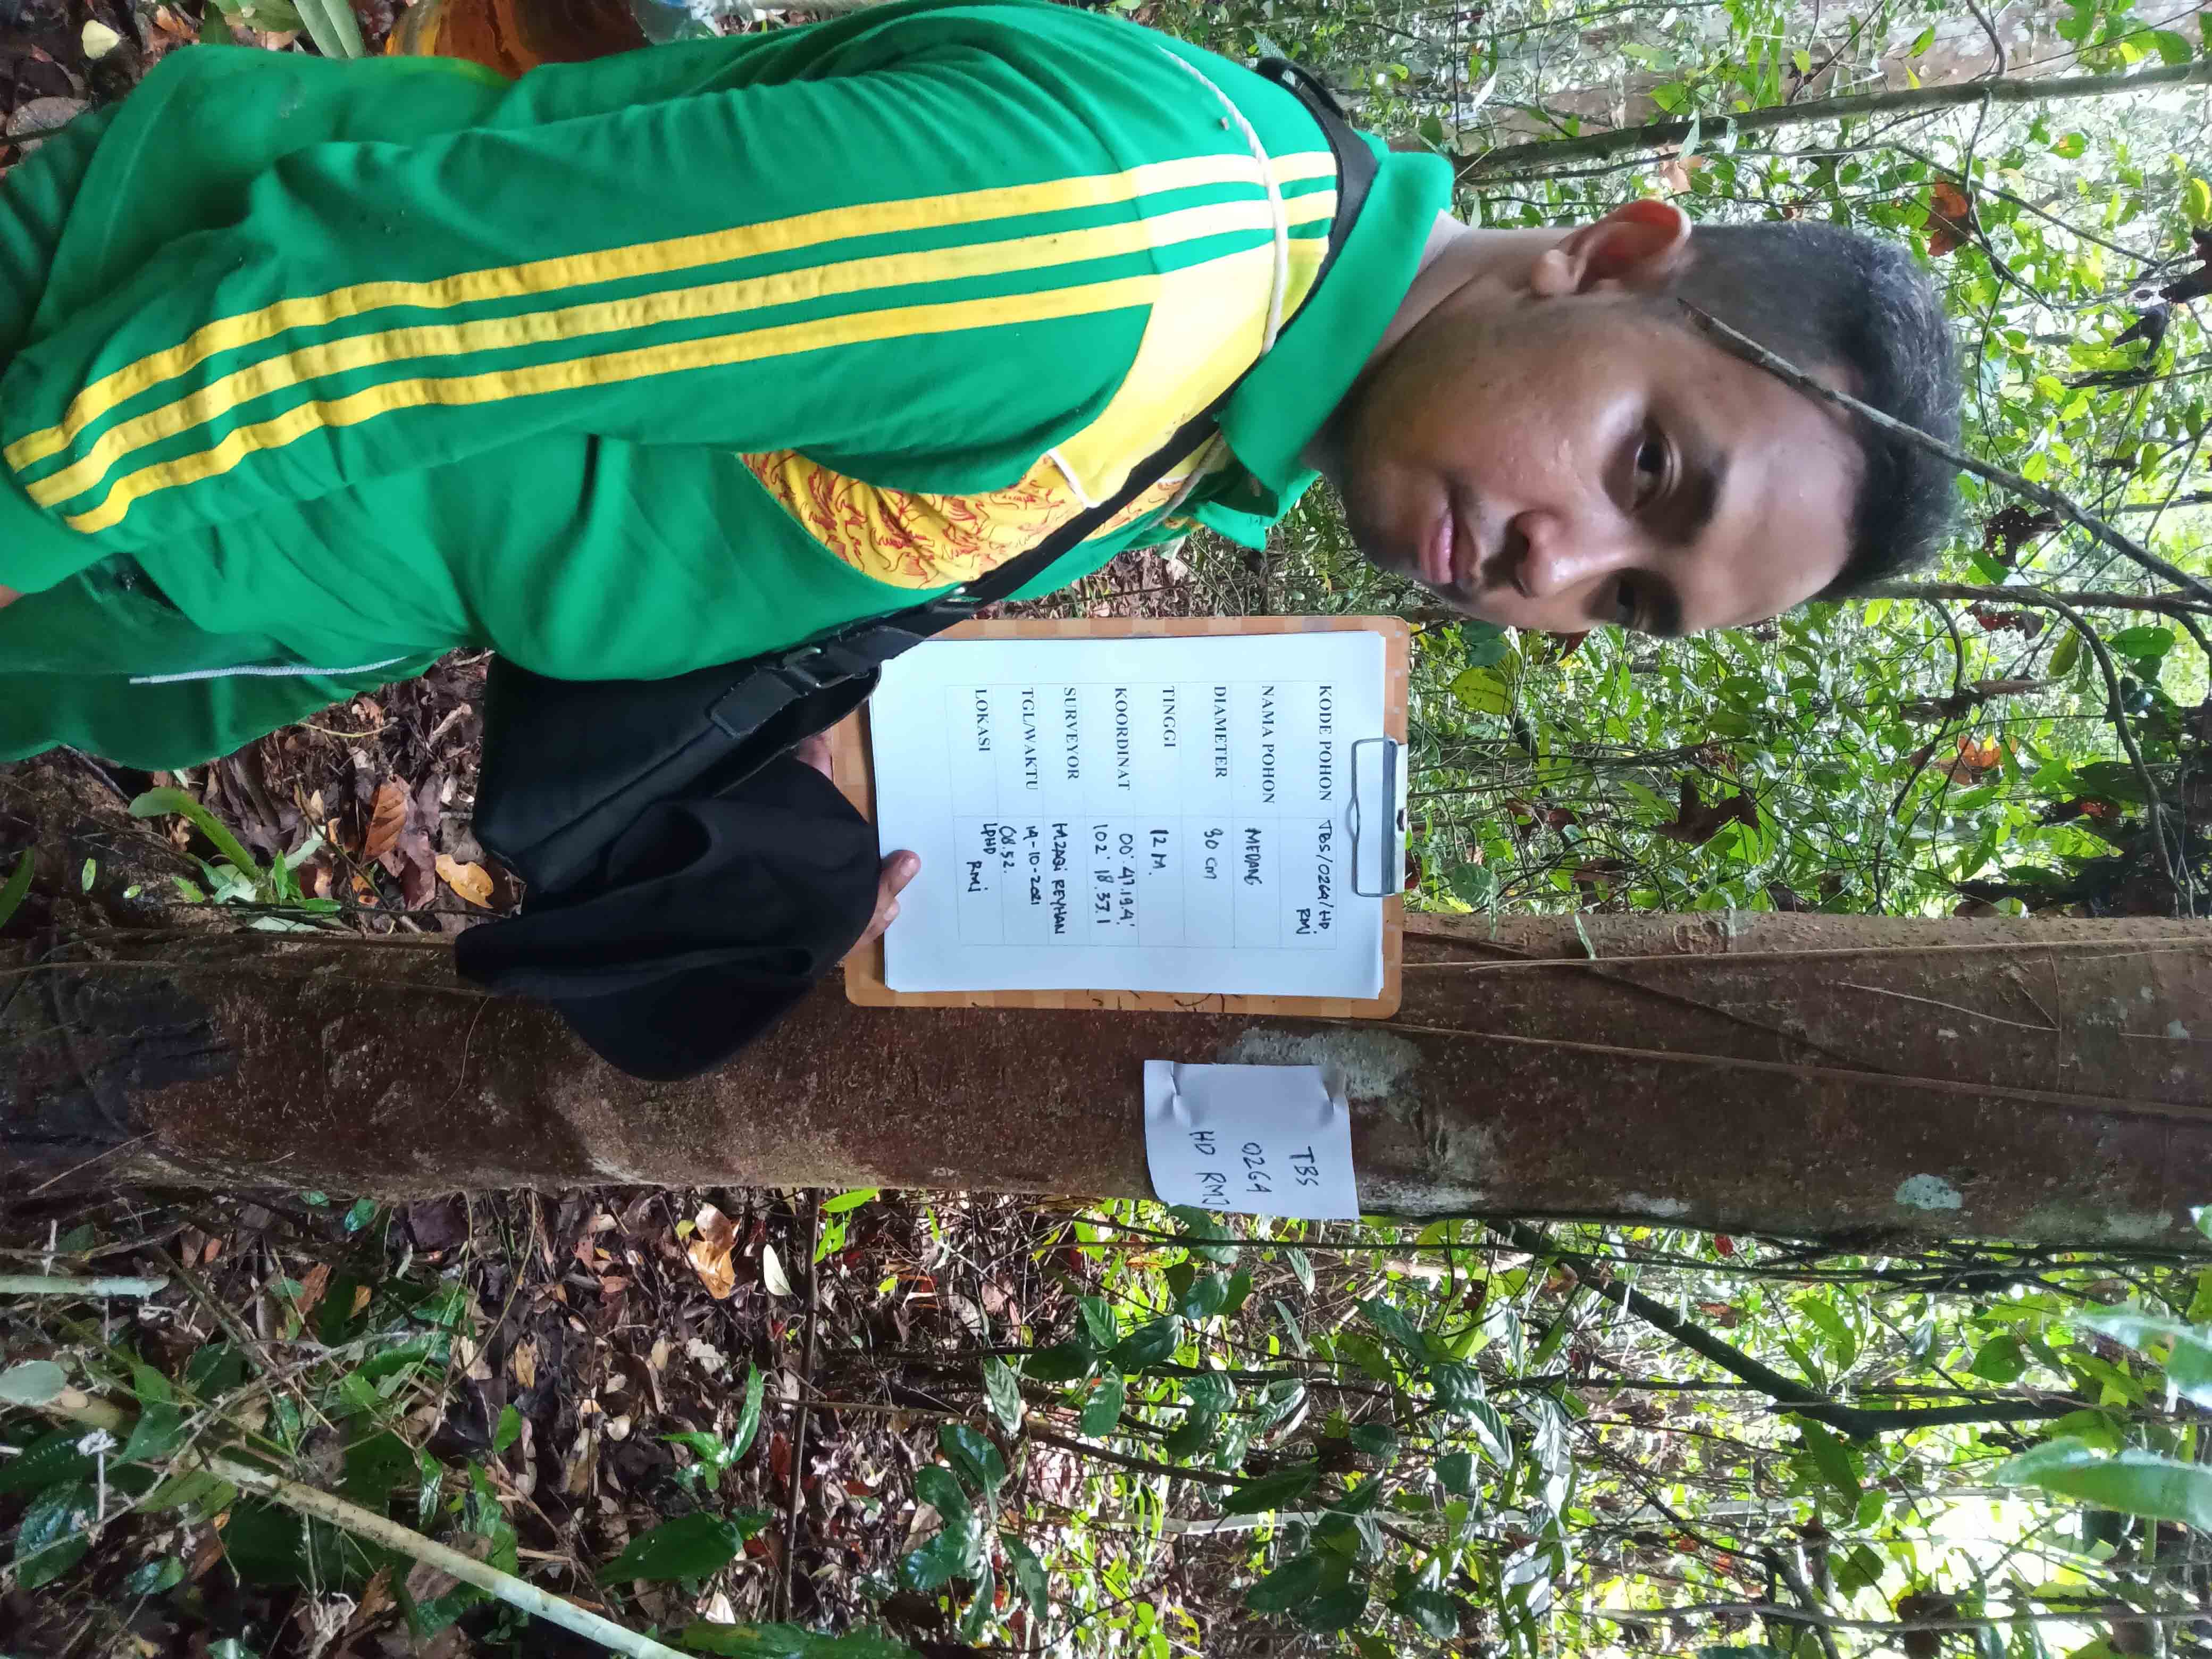 KODE POHON TBS/0264/HD.
RMJ
NAMA POHON MEDANG
DIAMETER 30 cm
TINGGI 12 M.
KOORDINAT 00°.47.19.4'.
102° 18.33.1
SURVEYOR M.ZAQi REYHAN
TGL/WAKTU 14-10-2021
08.52.
LOKASI LPHD
RMJ
TBS
0264
HD RMJ